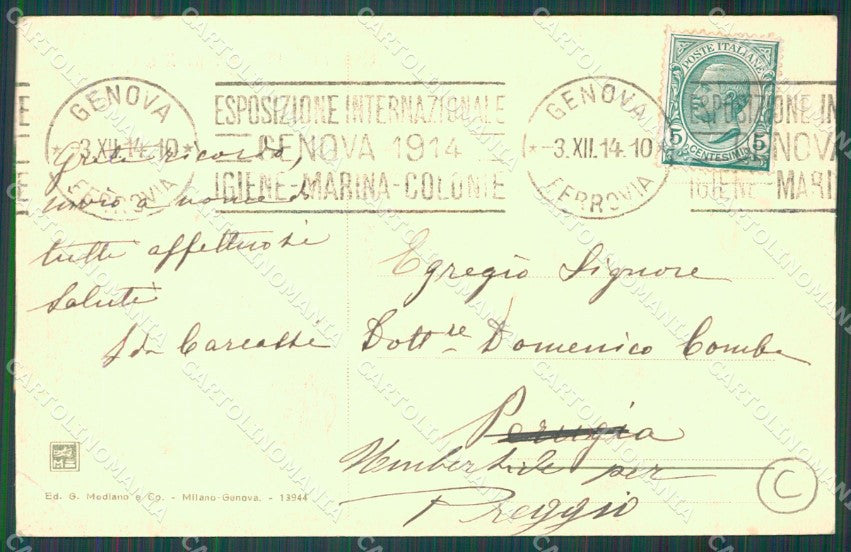 GENOVA
*-3.XII.14.10*
FERROVIA
ESPOSIZIONE INTERNAZIONALE
GENOVA 1914
IGIENE-MARINA-COLONIE
GENOVA
*-3.XII.14.10*
FERROVIA
ESPOSIZIONE IN
GENOVA
IGIENE-MARI
POSTE ITALIANE
5 5
CENTESIMI
ricordo,
a nome di
tutti affettuosi
Saluti
Ida Carcassi
Egregio Signore
Dottre Domenico Combe
Perugia
Umbertide per
Preggio
C
Ed. G. Modiano e Co. - Milano-Genova. - 13944
CARTOLINOMANIA